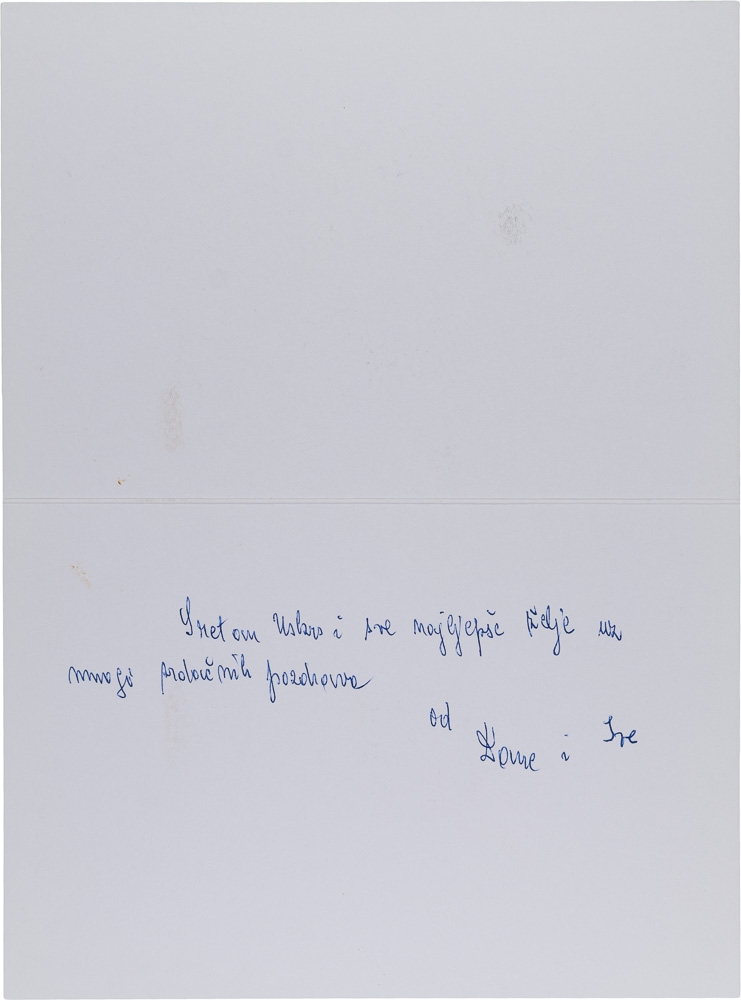 Sretan Uskrs i sve najljepše želje uz
mnogo srdačnih pozdrava
od
i Ive